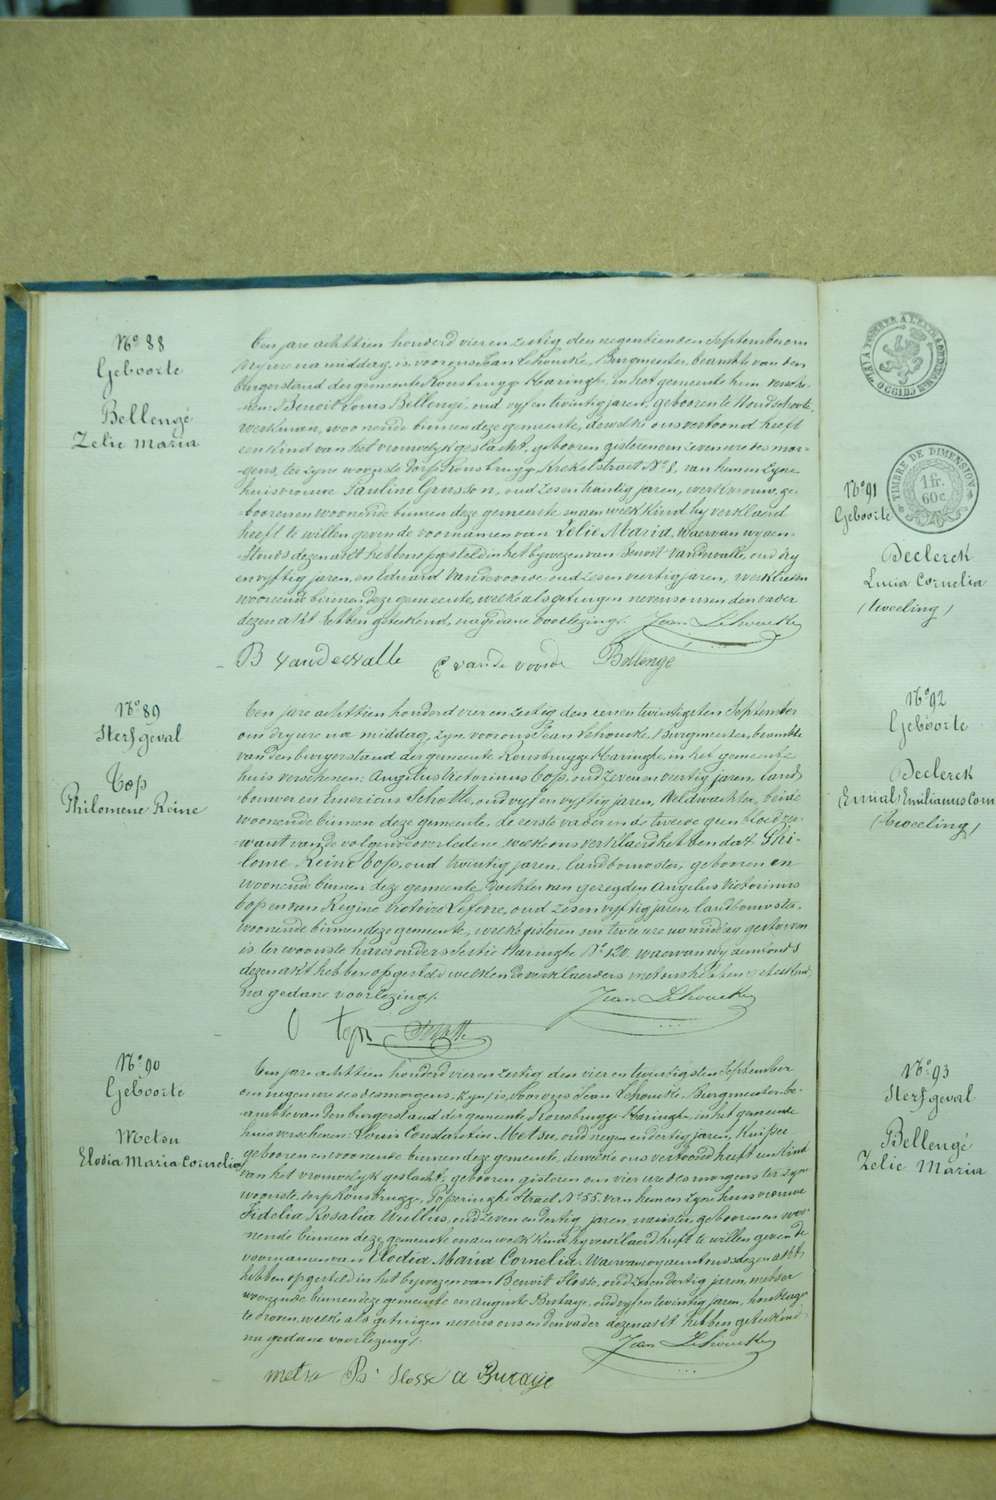 No 88
Geboorte
Bellengé
Zelie Maria
Een jare achttien honderd vier en zestig den negentienden September om
dry ure na middag, is voor ons Jean Lehoucke, Burgmeester, beambte van den
burgerstand der gemeente Rousbrugge Haringhe, in het gemeente huis versche-
nen: Benoit Louis Bellengé, oud vyf en twintig jaren, geboren te Hondschoote,
werkman, woonende binnen deze gemeente, dewelke ons vertoond heeft
een kind van het vrouwelyk geslacht, geboren gisteren om zeven ure des mor-
gens, ter zyne woonste dorp Rousbrugge Krekelstraet No 8, van hem en zyne
huisvrouwe Pauline Grusson, oud zes en twintig jaren, werkvrouw, ge-
boren en woonende binnen deze gemeente en aen welk kind hy verklaerd
heeft te willen geven de voornamen van Zélie Maria, waervan wy aen-
stonds dezen akt hebben opgesteld in het bywezen van Benoit Vandewalle, oud dry
en vyftig jaren, en Eduard Vandevoorde oud zes en veertig jaren, werklieden
woonende binnen deze gemeente, welke als getuigen nevens ons en den vader
dezen akt hebben geteekend, na gedane voorlezing. Jean Lehoucke
B vandewalle E vande voorde Bellenge
No 89
Sterfgeval
Top
Philomene Reine
Een jare achttien honderd vier en zestig den een en twintigsten September
om dry ure na middag, zyn voor ons Jean Lehoucke, Burgmeester, beambte
van den burgerstand der gemeente Rousbrugge Haringhe, in het gemeente
huis verschenen: Angelus Victorinus Top, oud zeven en veertig jaren, land-
bouwer en Emericus Schotte, oud vyf en vyftig jaren, Veldwachter, beide
woonende binnen deze gemeente, de eerste vader en de tweede geen bloedver-
want van de volgende overledene, welke ons verklaerd hebben dat Phi-
lome Reine Top, oud twintig jaren, landbouwster, geboren en
woonende binnen deze gemeente, dochter van gezegden Angelus Victorinus
Top en van Regine Victoire Lefevre, oud zes en vyftig jaren, landbouwster,
woonende binnen deze gemeente, welke gisteren om twee ure na middag gestorven
is ter woonste haer ouders sectie Haringhe No 120. waervan wy aenstonds
dezen akt hebben opgesteld welken de verklaerders met ons hebben geteekend,
na gedane voorlezing. Jean Lehoucke
Top Schotte
No 90
Geboorte
Metsu
Elodia Maria Cornelia
Een jare achttien honderd vier en zestig den vier en twintigsten September
om negen ure des morgens, is voor ons Jean Lehoucke, Burgmeester be-
ambte van den burgerstand der gemeente Rousbrugge Haringhe, in het gemeente
huis verschenen: Louis Constantin Metsu, oud negen en dertig jaren, kuiper
geboren en woonende binnen deze gemeente, dewelke ons vertoond heeft een kind
van het vrouwelyk geslacht, geboren gisteren om vier ure des morgens ter zyne
woonste dorp Rousbrugge, Poperinghe Straet No 55. van hem en zyne huisvrouwe
Fidelia Rosalia Wullus, oud zeven en dertig jaren, naeister, geboren en woo-
nende binnen deze gemeente en aen welk kind hy verklaerd heeft te willen geven de
voornamen van Elodia Maria Cornelia. Waervan wy aenstonds dezen akt
hebben opgesteld in het bywezen van Benoit Slosse, oud zes en dertig jaren, metser
woonende binnen deze gemeente en Auguste Butaye, oud vyf en twintig jaren,
welke als getuigen nevens ons en den vader dezen akt hebben geteekend
na gedane voorlezing. Jean Lehoucke
metsu Bt Slosse A Butaye
TIMBRE DE DIMENSION
1 fr.
60 c.
No 91
Geboorte
Declerck
Lucia Cornelia
(tweeling)
No 92
Geboorte
Declerck
Emilianus Corn
(tweeling)
No 93
Sterfgeval
Bellengé
Zelie Maria